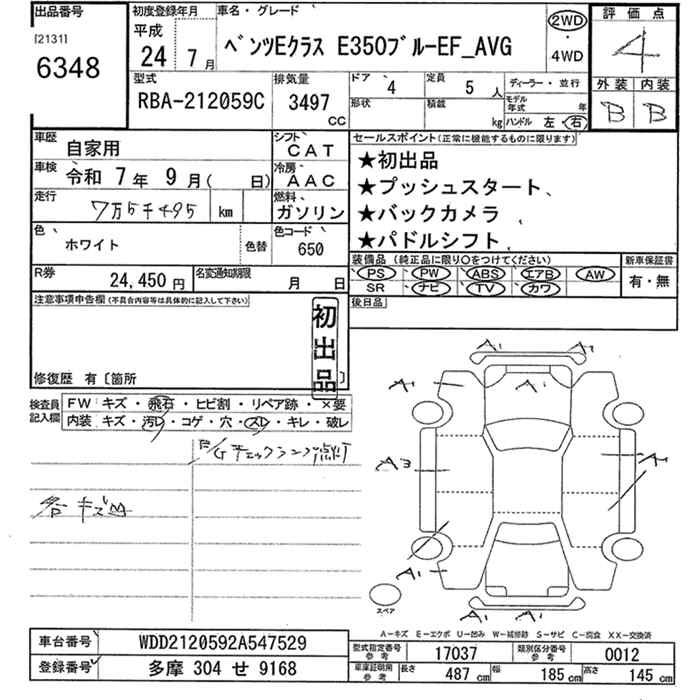 出品番号
[2131]
6348
初度登録年月
平成
24 7 月
車名・グレード
ベンツEクラス E350ブルーEF_AVG
2WD
・
4WD
評価点
4
外装 内装
B B
型式
RBA-212059C
排気量
3497
cc
ドア 4
定員 5 人
形状
積載 kg
ディーラー・並行
モデル年式 年
ハンドル 左・右
車歴 自家用
シフト CAT
車検 令和 7 年 9 月( 日)
冷房 AAC
走行 7万5千495 km
燃料 ガソリン
色 ホワイト
色替
色コード 650
R券 24,450 円
名変通知期限 月 日
セールスポイント(正常に機能するものに限ります)
★初出品
★プッシュスタート、
★バックカメラ
★パドルシフト、
装備品 (純正品に限り○をつけてください)
PS PW ABS エアB AW
SR ナビ TV カワ
新車保証書
有・無
後日品
注意事項申告欄(不具合内容等は具体的に記入して下さい)
初出品
修復歴 有〔箇所 〕
検査員記入欄
FW キズ・飛石・ヒビ割・リペア跡・×要
内装 キズ・汚レ・コゲ・穴・スレ・キレ・破レ
E/Gチェックランプ点灯
各キズ凹
A1 A1
A1 A1
A3
A1
A1 A1
スペア
A-キズ E-エクボ U-凹み W-補修跡 S-サビ C-腐食 XX-交換済
車台番号 WDD2120592A547529
登録番号 多摩 304 せ 9168
型式指定番号 参考 17037
類別区分番号 参考 0012
車庫証明用 参考 長さ 487 cm 幅 185 cm 高さ 145 cm